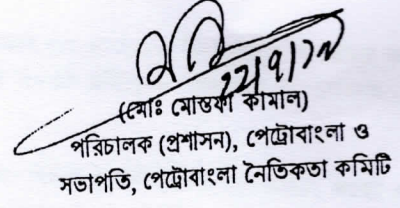 (মোঃ মোস্তফা কামাল)
পরিচালক (প্রশাসন), পেট্রোবাংলা ও
সভাপতি, পেট্রোবাংলা নৈতিকতা কমিটি